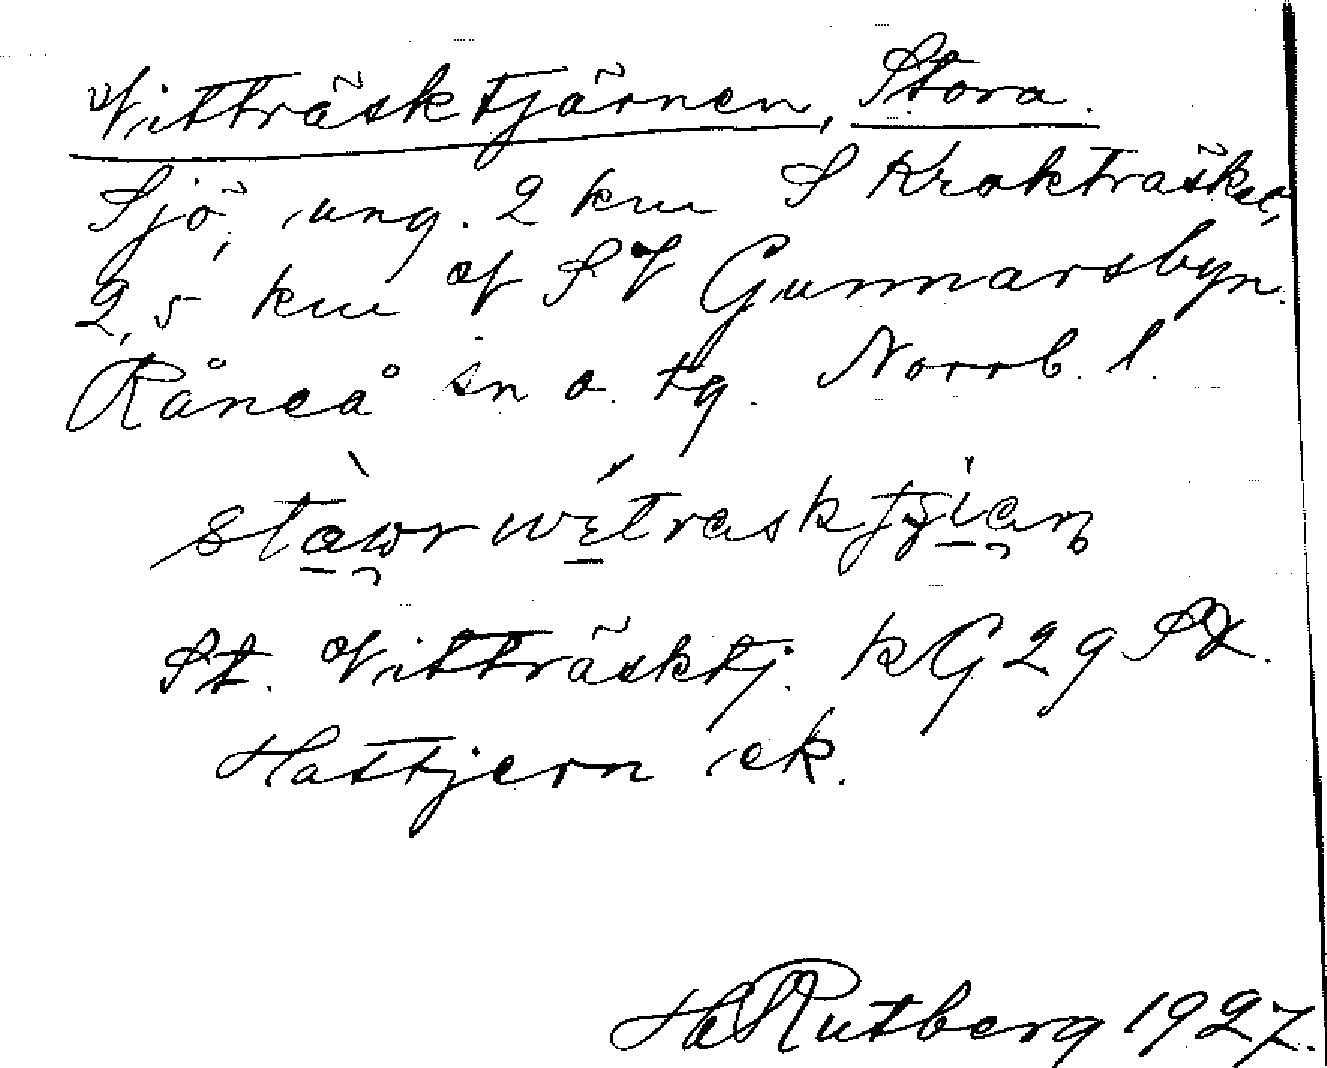 Vitträsktjärnen, Stora.
Sjö, ung. 2 km S Krokträsket,
2,5 km V SV Gunnarsbyn.
Råneå sn o. tg. Norrb. l.
St. Vitträsktj. kG 29 St.
Hattjern ek.
H Rutberg 1927.